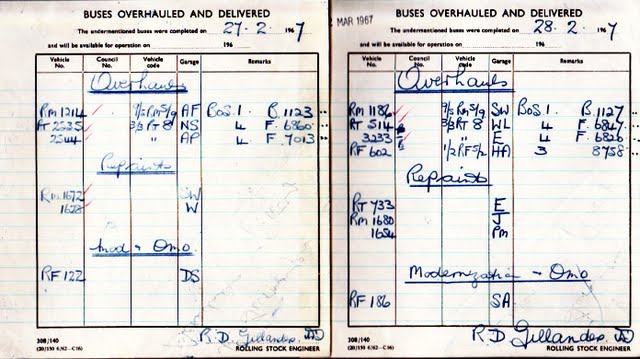 BUSES OVERHAULED AND DELIVERED
The undermentioned buses were completed on 27. 2. 1967
and will be available for operation on 196
Vehicle No. Council No. Vehicle code Garage Remarks
Overhauls
RM 1214 AF BOS. 1 B. 1123
RT 2535 3/3 RT 8 NS 4 F. 6860
2544 " AP 4 F. 7013
Repaints
RM 1672 SW
1628 W
mod - Omo
RF 122 DS
308/140
(20/150 6/62-C16)
R.D Gillander
ROLLING STOCK ENGINEER
MAR 1967
BUSES OVERHAULED AND DELIVERED
The undermentioned buses were completed on 28. 2. 1967
and will be available for operation on 196
Vehicle No. Council No. Vehicle code Garage Remarks
Overhauls
RM 1186 SW BOS. 1 B. 1127
RT 514 3/3 RT 8 WL 4 F. 6847
3233 " E 4 F. 6826
RF 602 1/2 RF 5/2 HA 3 8758
Repaints
RT 733 E
RM 1680 J
1654 PM
Modernization - Omo
RF 186 SA
308/140
(20/150 6/62-C16)
R.D Gillander
ROLLING STOCK ENGINEER